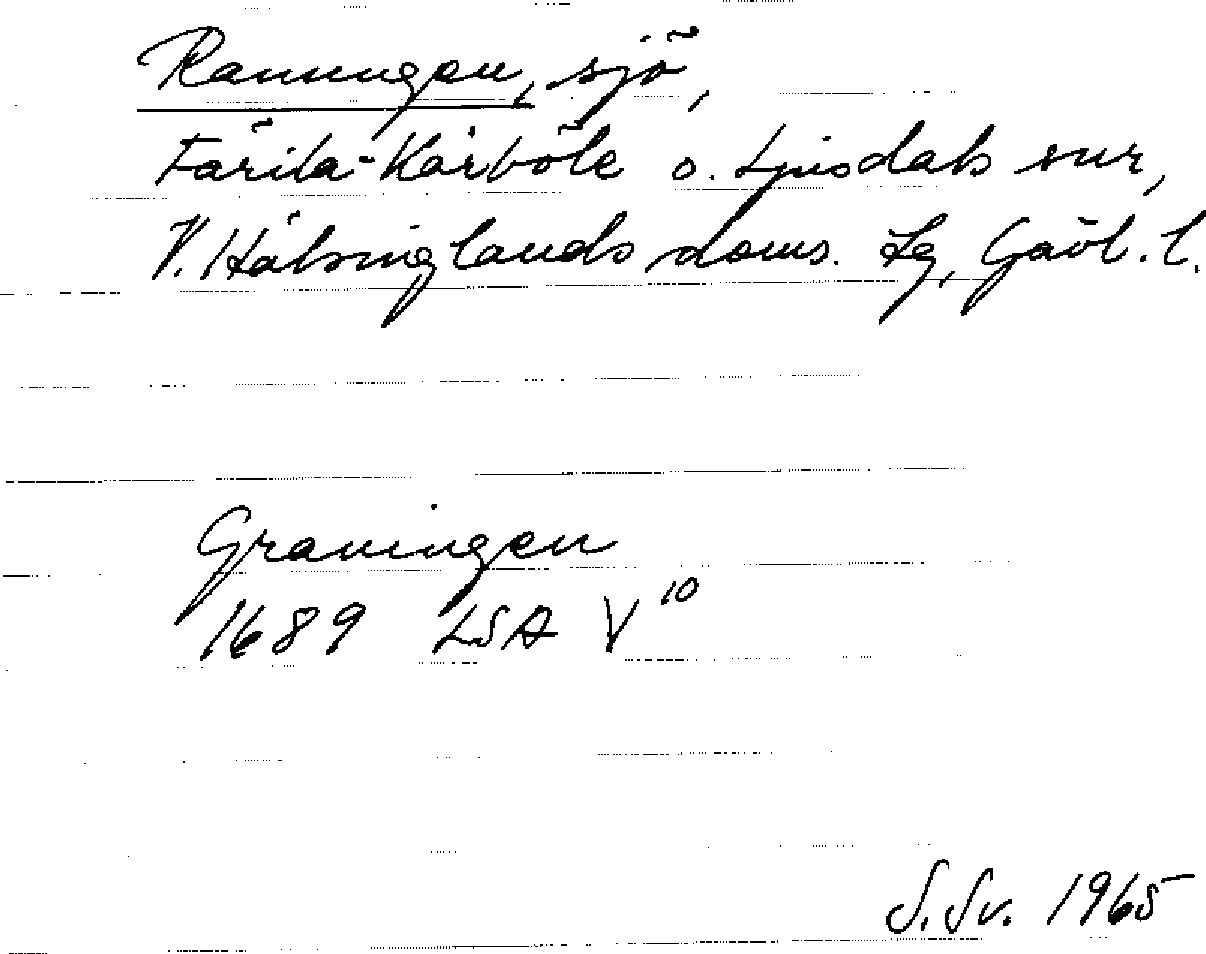 Ranningen, sjö,
Färila-Kårböle o. Ljusdals snr,
V. Hälsinglands doms. lg, Gävl. l.
Graningen
1689 LSA V 10
S. Sv. 1965